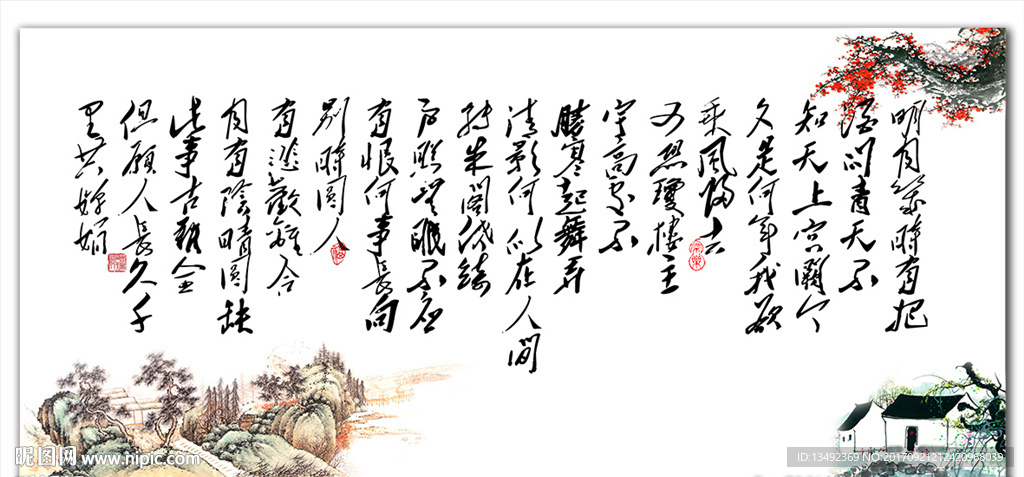 明月幾時有把
酒问青天不
知天上宫闕今
夕是何年我欲
乘風歸去
又恐瓊樓玉
宇高處不
勝寒起舞弄
清影何似在人間
轉朱閣低綺
户照無眠不应
有恨何事長向
别時圓人
有悲歡離合
月有陰晴圓缺
此事古難全
但願人長久千
里共嬋娟
昵图网 www.nipic.com
ID:13492369 NO:20170921212420968039